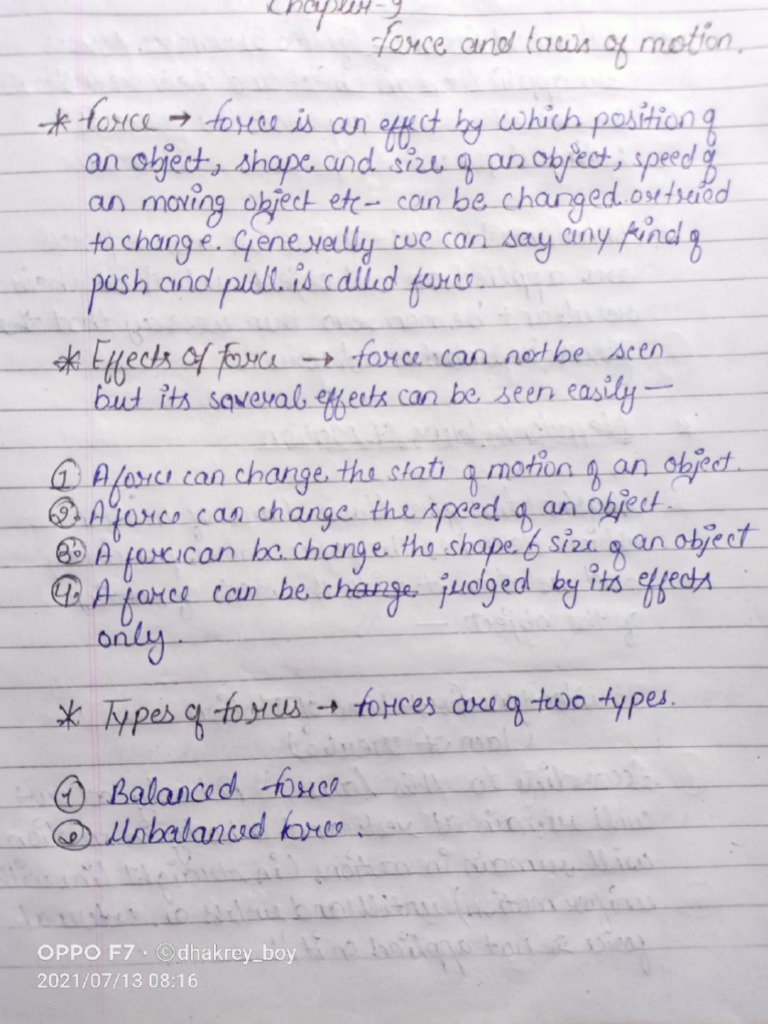 Chapter-9
Force and laws of motion.
* Force → force is an effect by which position of
an object, shape and size of an object, speed of
an moving object etc- can be changed or treied
to change. Generally we can say any kind of
push and pull is called force
* Effects of Force → force can not be seen
but its saveral effects can be seen easily —
① A force can change the state of motion of an object.
②. A force can change the speed of an object.
③. A force can be change the shape & size of an object
④. A force can be change judged by its effects
only.
* Types of forces → forces are of two types.
① Balanced force
② Unbalanced force.
OPPO F7 · ©dhakrey_boy
2021/07/13 08:16